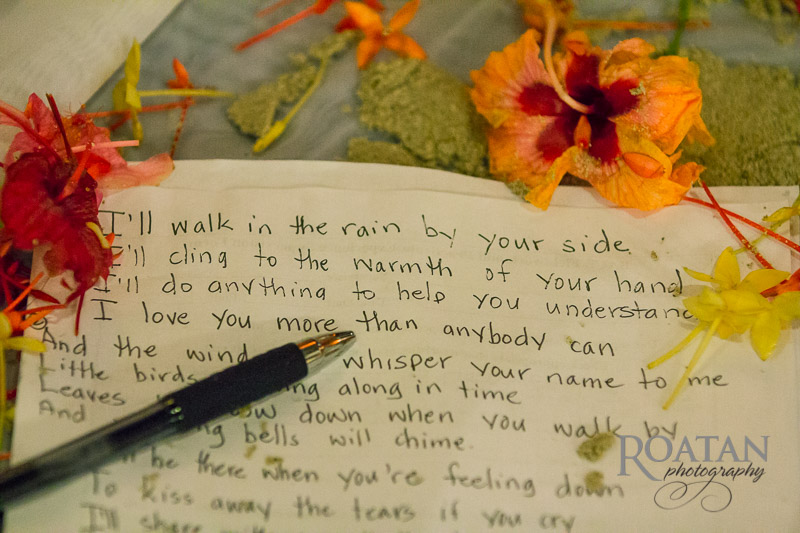 I'll walk in the rain by your side
I'll cling to the warmth of your hand
I'll do anything to help you understand
I love you more than anybody can
And the wind whisper your name to me
Little birds along in time
Leaves down when you walk by
And bells will chime.
be there when you're feeling down
To kiss away the tears if you cry
I'll share
ROATAN
photography